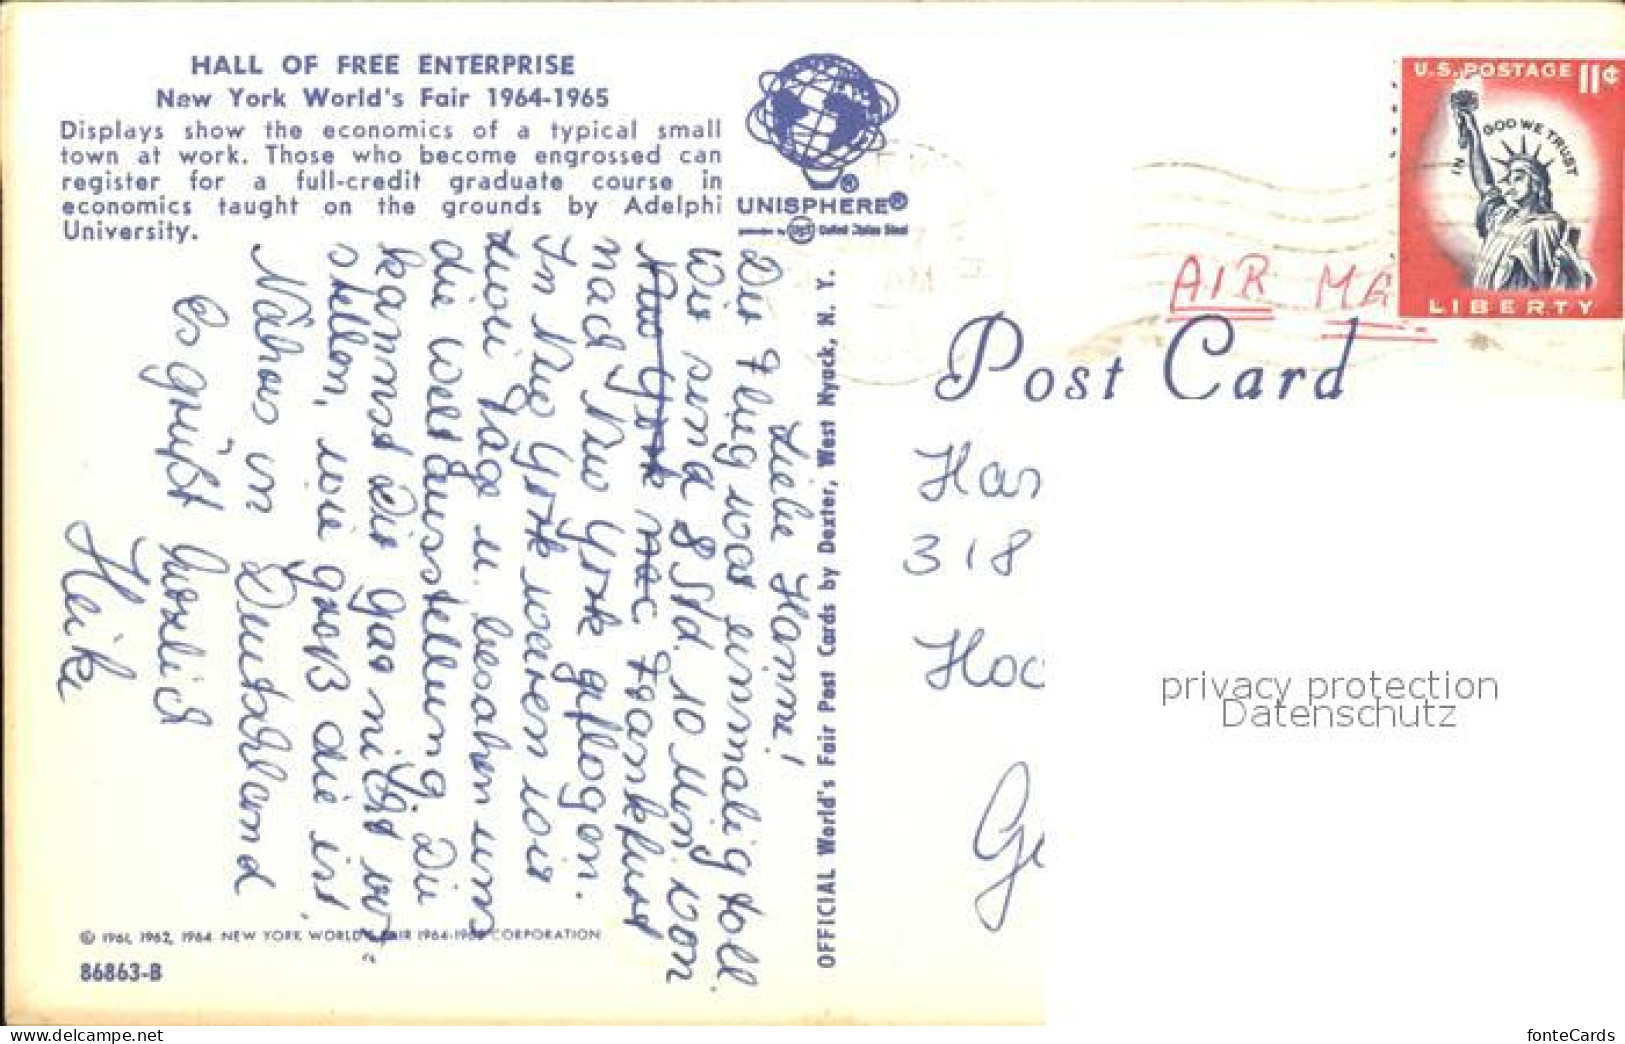 HALL OF FREE ENTERPRISE
New York World's Fair 1964-1965
Displays show the economics of a typical small
town at work. Those who become engrossed can
register for a full-credit graduate course in
economics taught on the grounds by Adelphi
University.
UNISPHERE®
presented by USS United States Steel
U.S. POSTAGE 11¢
IN GOD WE TRUST
LIBERTY
AIR MA
Post Card
Liebe Hanni!
Der Flug war einmalig toll.
Wir sind 8 Std. 10 Min. von
New York nac Frankfurt
nach New York geflogen.
In New York waren wir
zwei Tage u. besahen uns
die Weltausstellung. Du
kannst Dir gar nicht vor-
stellen, wie groß die ist.
Näheres in Deutschland
Es grüßt herzlich
Heike
OFFICIAL World's Fair Post Cards by Dexter, West Nyack, N. Y.
Han
318
Hoc
Ge
privacy protection
Datenschutz
© 1961, 1962, 1964 NEW YORK WORLD'S FAIR 1964-1965 CORPORATION
86863-B
www.delcampe.net
fonteCards